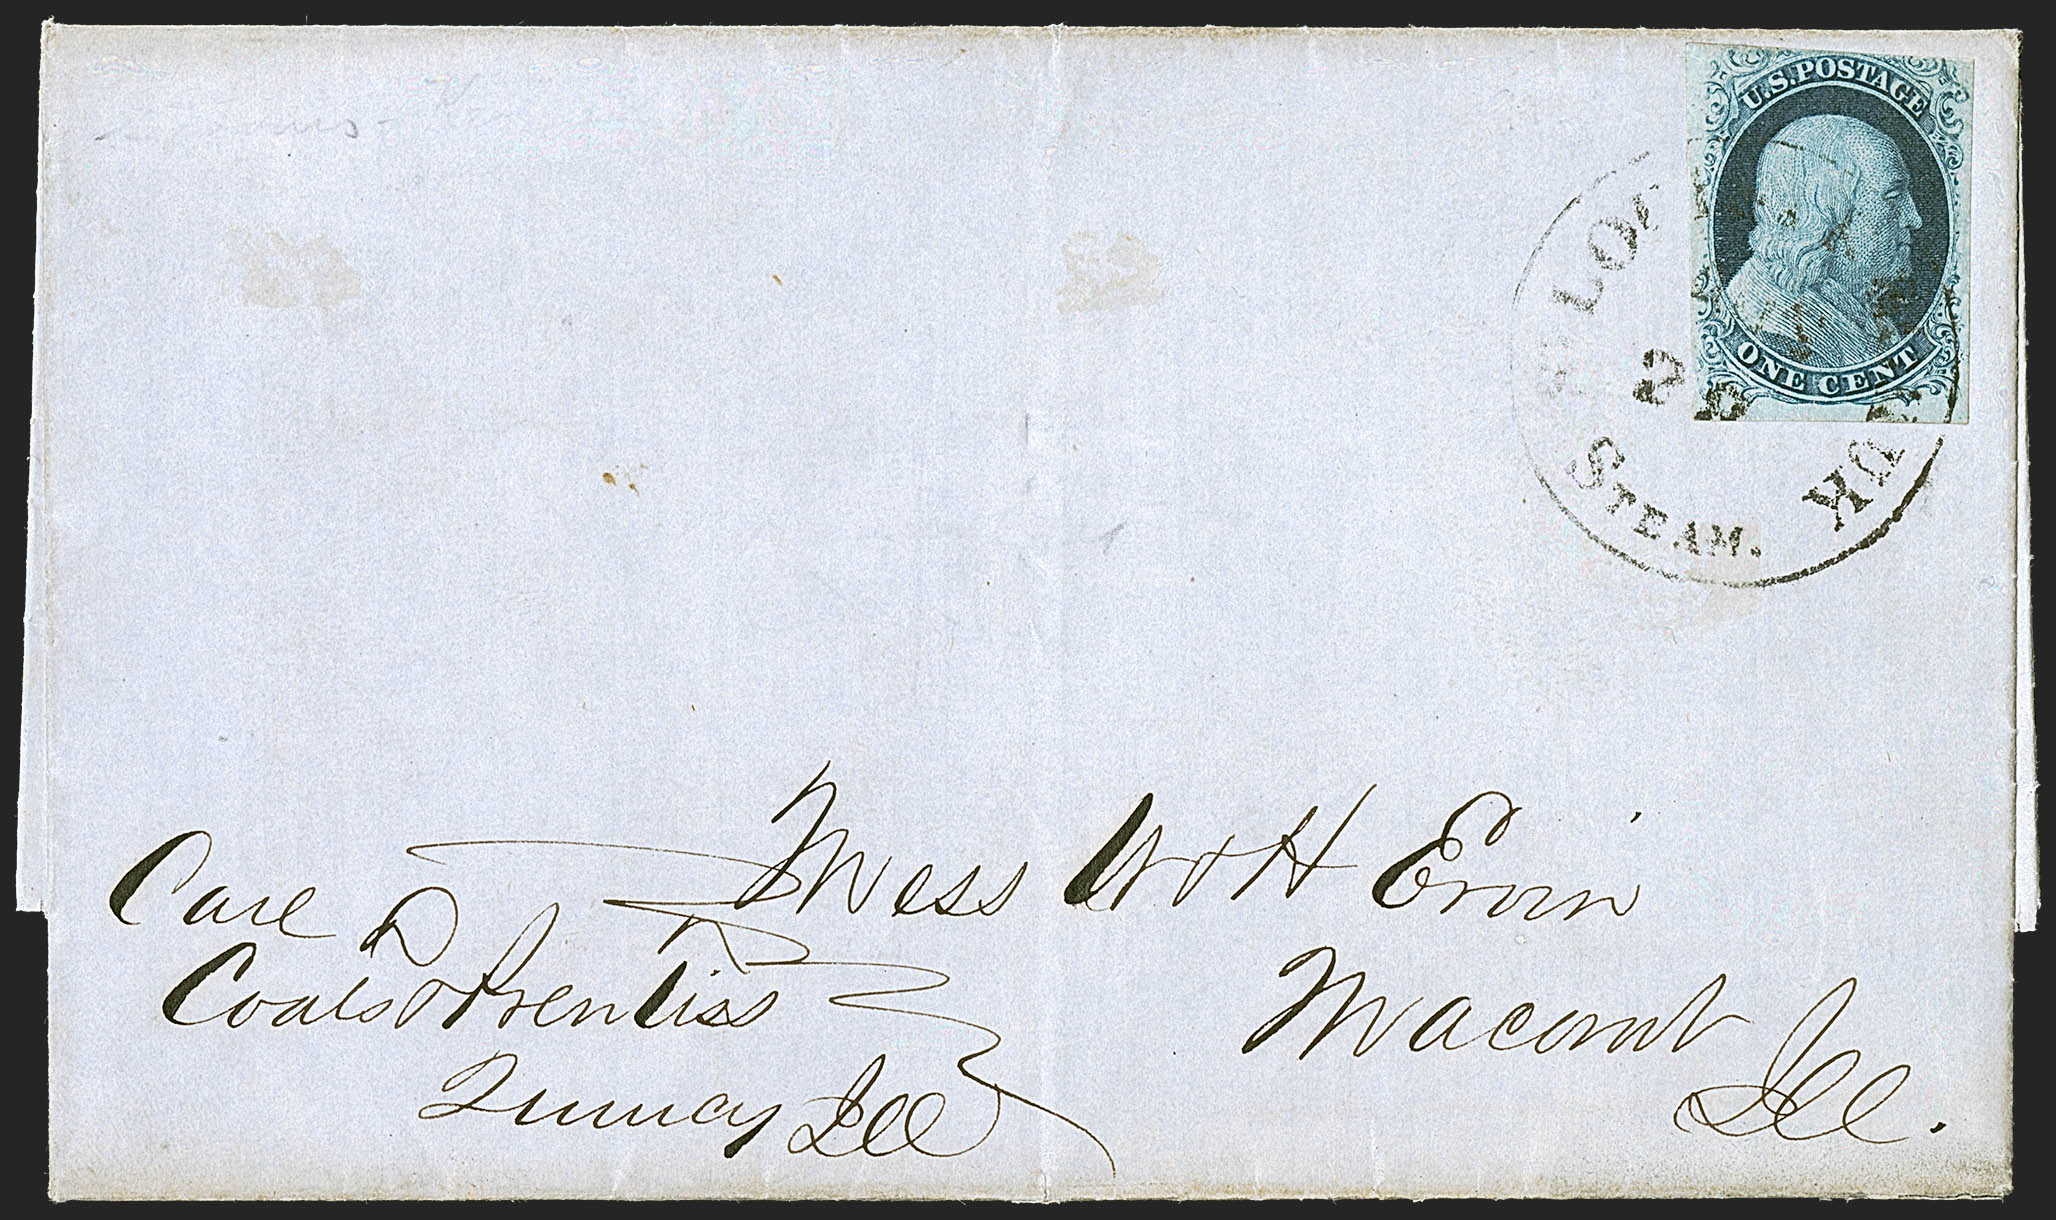 U.S. POSTAGE
ONE CENT
STEAM.
Mess W & H Ervin
Macomb
Ill.
Care
Coats & Prentiss
Quincy Ill